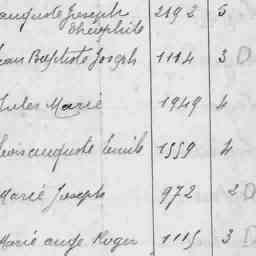 auguste Joseph 2192 5
Théophile
Jean Baptiste Joseph 1114 3 D
Jules Marie 1949 4
Louis auguste Emile 1559 4
Marie Joseph 972 2 D
Marie ange Roger 1115 3 D